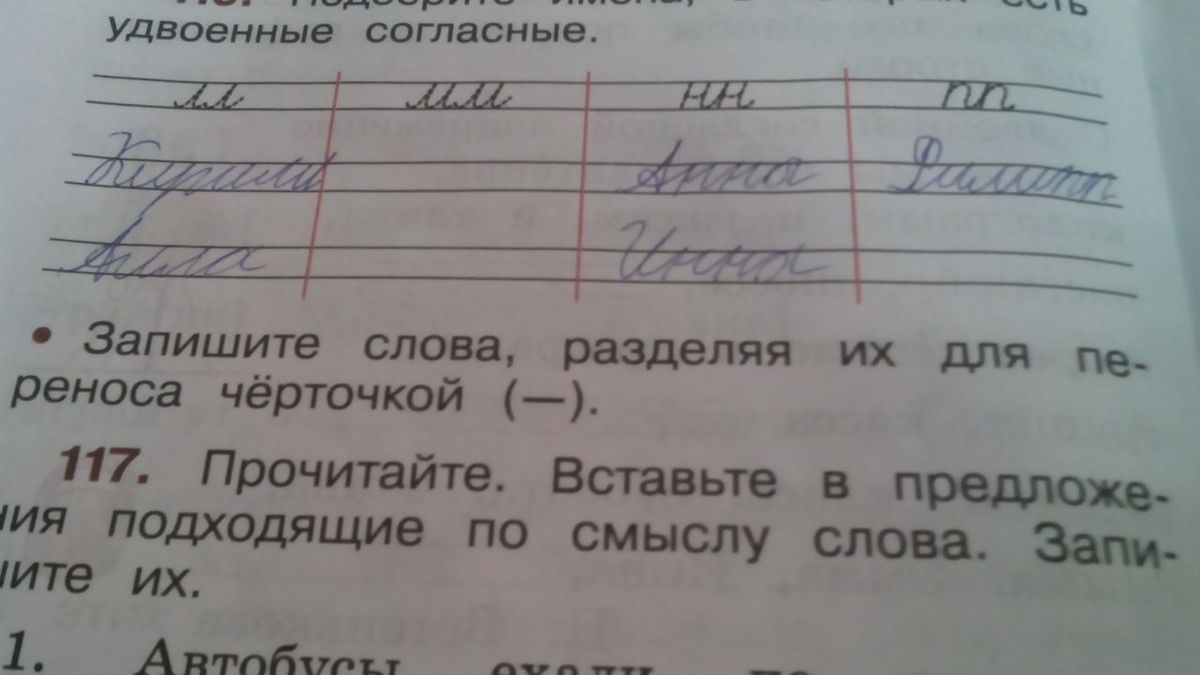 Подберите имена, в которых есть
удвоенные согласные.
лл мм нн пп
Кирилл Анна Филипп
Алла Инна
• Запишите слова, разделяя их для пе-
реноса чёрточкой (—).
117. Прочитайте. Вставьте в предложе-
ния подходящие по смыслу слова. Запи-
шите их.
1. Автобусы ехали по